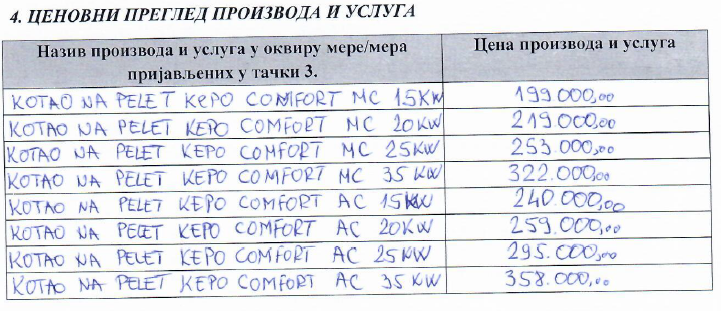 4. ЦЕНОВНИ ПРЕГЛЕД ПРОИЗВОДА И УСЛУГА
Назив производа и услуга у оквиру мере/мера Цена производа и услуга
пријављених у тачки 3.
KOTAO NA PELET KEPO COMFORT MC 15KW 199.000,00
KOTAO NA PELET KEPO COMFORT MC 20KW 219.000,00
KOTAO NA PELET KEPO COMFORT MC 25KW 253.000,00
KOTAO NA PELET KEPO COMFORT MC 35KW 322.000,00
KOTAO NA PELET KEPO COMFORT AC 15KW 240.000,00
KOTAO NA PELET KEPO COMFORT AC 20KW 259.000,00
KOTAO NA PELET KEPO COMFORT AC 25KW 295.000,00
KOTAO NA PELET KEPO COMFORT AC 35KW 358.000,00